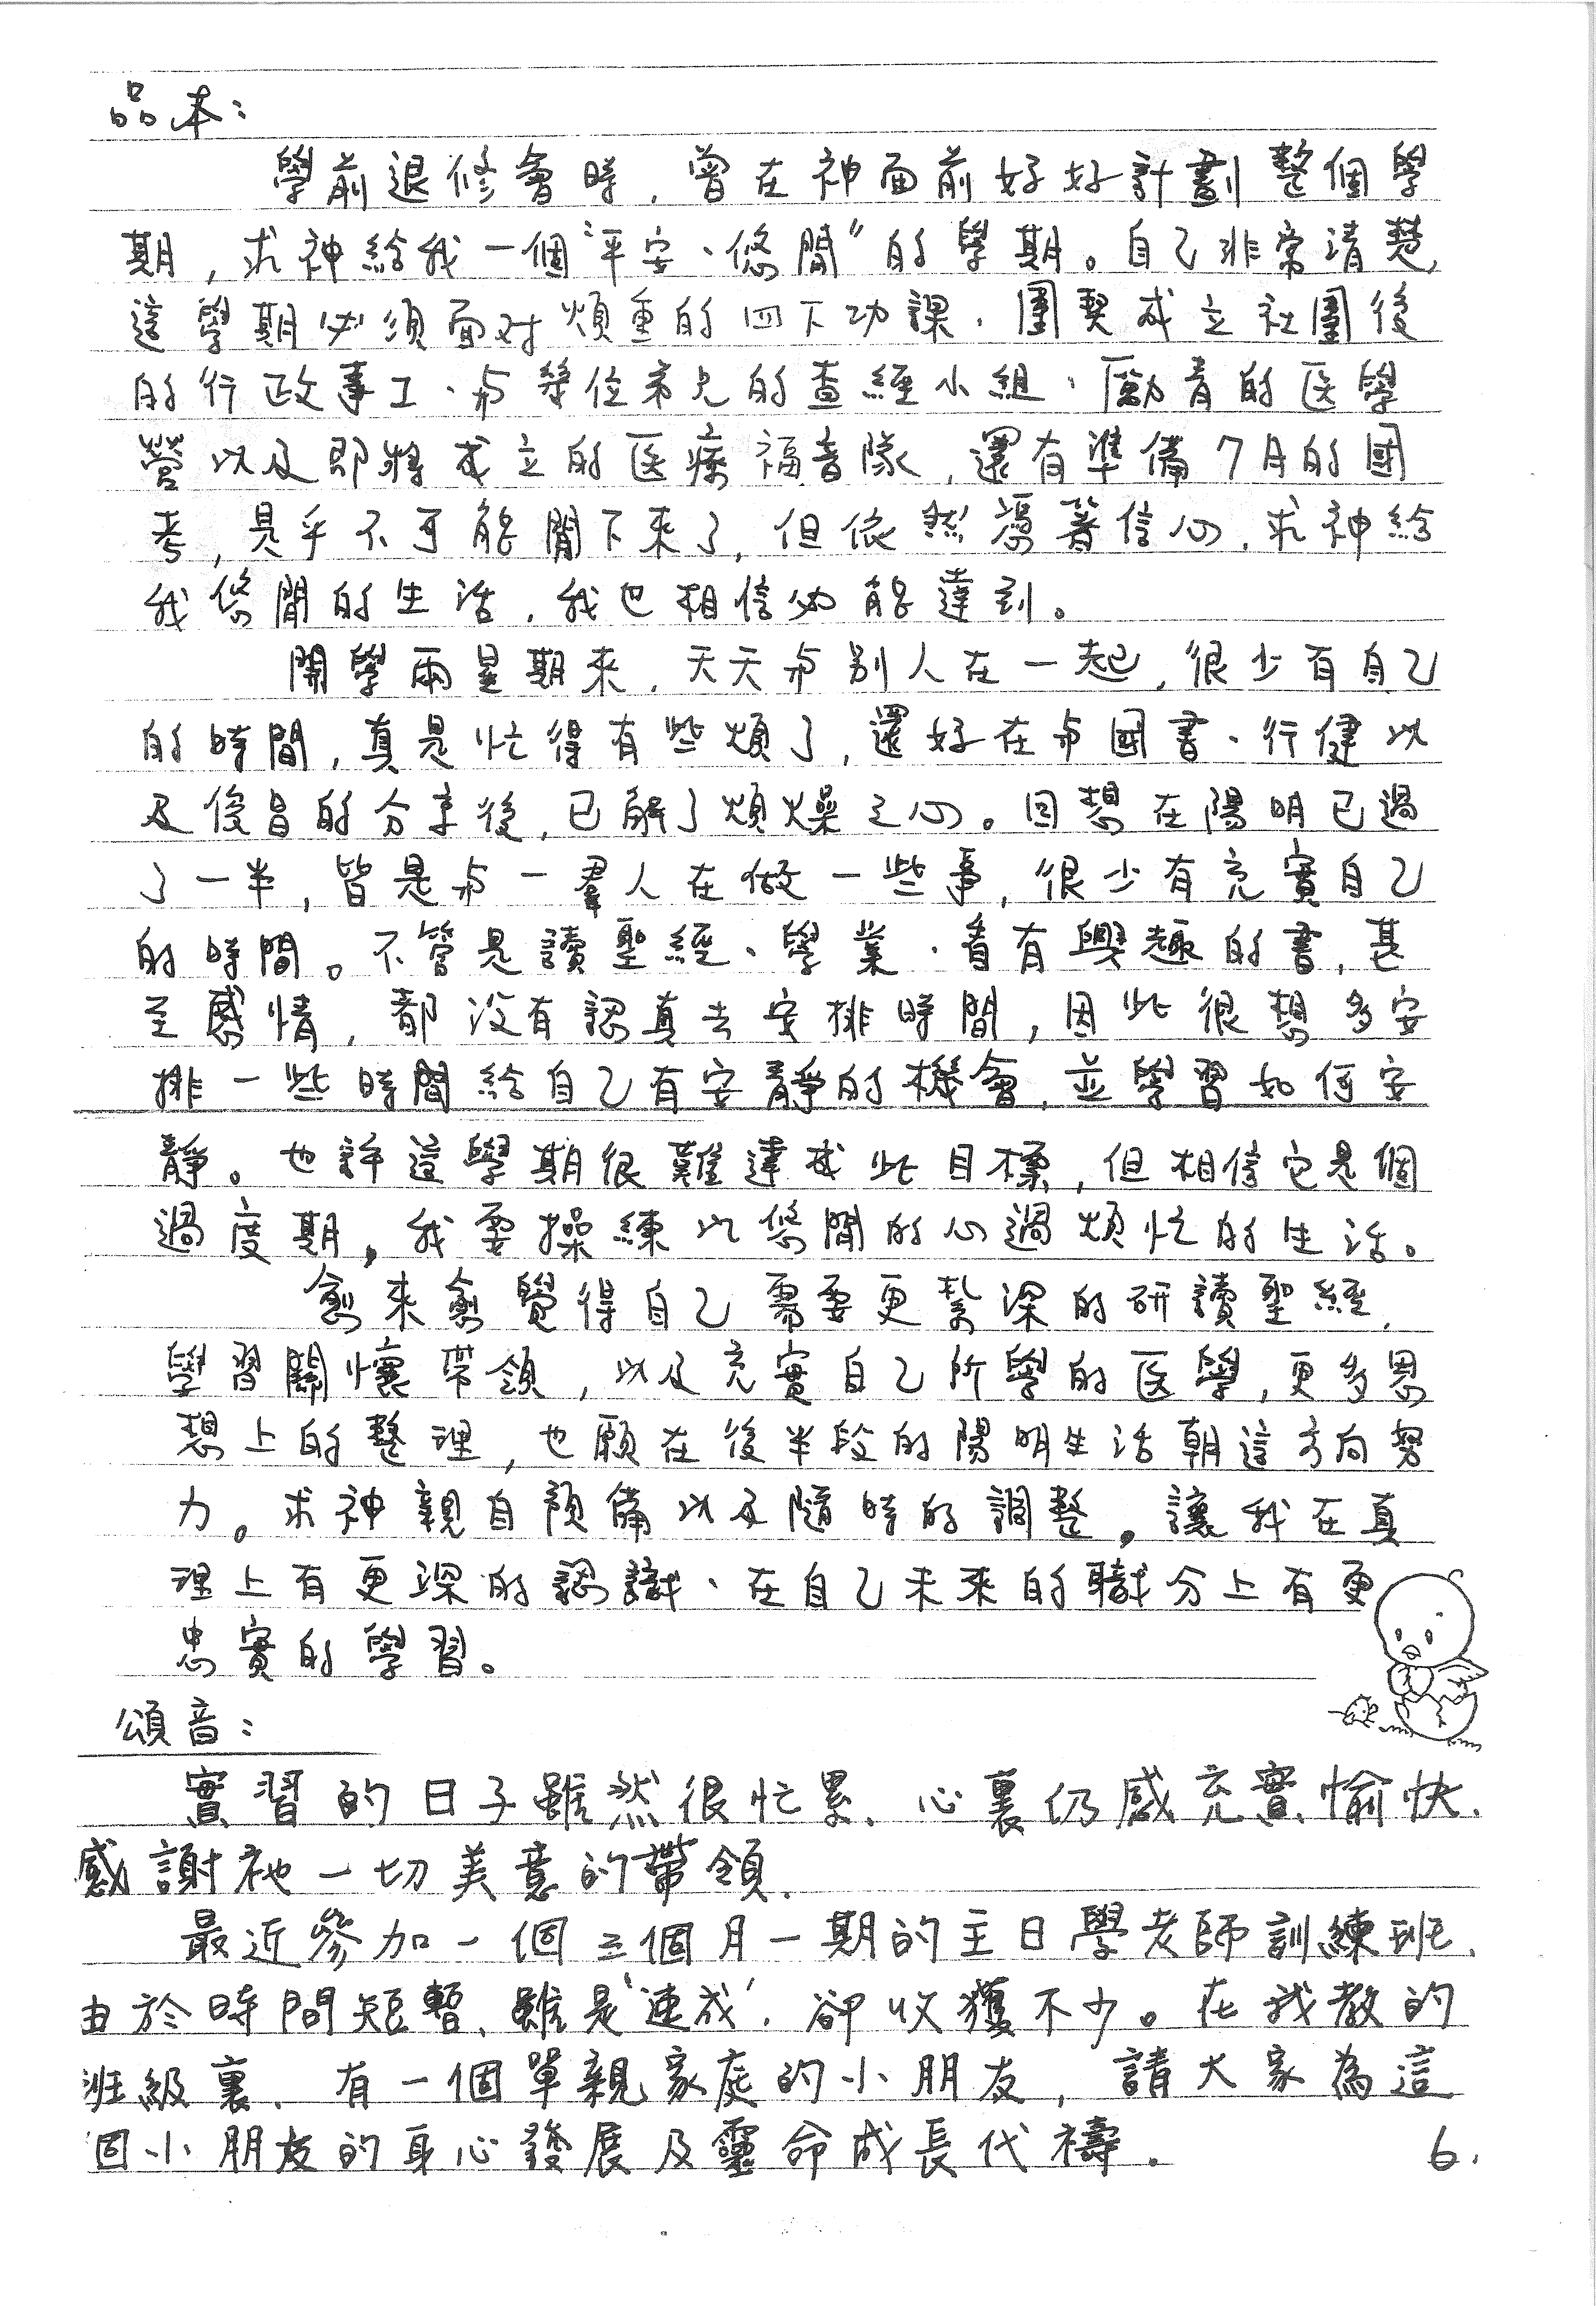 品本:
學前退修會時,曾在神面前好好計劃整個學
期,求神給我一個“平安、悠閒”的學期。自己非常清楚,
這學期必須面對煩重的四下功課、團契成立社團後
的行政事工、与幾位弟兄的查經小組、勵青的医學
營以及即將成立的医療福音隊,還有準備7月的國
考,是乎不可能閒下來了,但依然憑著信心,求神給
我悠閒的生活,我也相信必能達到。
開學兩星期來,天天与別人在一起,很少有自己
的時間,真是忙得有些煩了,還好在与國書、行健以
及俊昌的分享後,已解了煩燥之心。回想在陽明已過
了一半,皆是与一羣人在做一些事,很少有充實自己
的時間。不管是讀聖經、學業、看有興趣的書,甚
至感情,都没有認真去安排時間,因此很想多安
排一些時間給自己有安靜的機會,並學習如何安
靜。也許這學期很難達成此目標,但相信它是個
過度期,我要操練以悠閒的心過煩忙的生活。
愈來愈覺得自己需要更紮深的研讀聖經,
學習關懷帶領,以及充實自己所學的医學,更多思
想上的整理,也願在後半段的陽明生活朝這方向努
力。求神親自預備以及隨時的調整,讓我在真
理上有更深的認識、在自己未來的職分上有更
忠實的學習。
頌音:
實習的日子雖然很忙累,心裏仍感充實、愉快.
感謝祂一切美意的帶領.
最近參加一個三個月一期的主日學老師訓練班.
由於時間短暫、雖是‘速成’,卻收獲不少。在我教的
班級裏、有一個單親家庭的小朋友,請大家為這
個小朋友的身心發展及靈命成長代禱.
6.